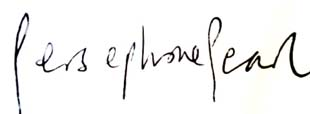 Persephone Pearl